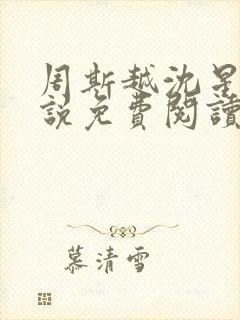 周斯越沈星
說免費閱讀
慕清雪